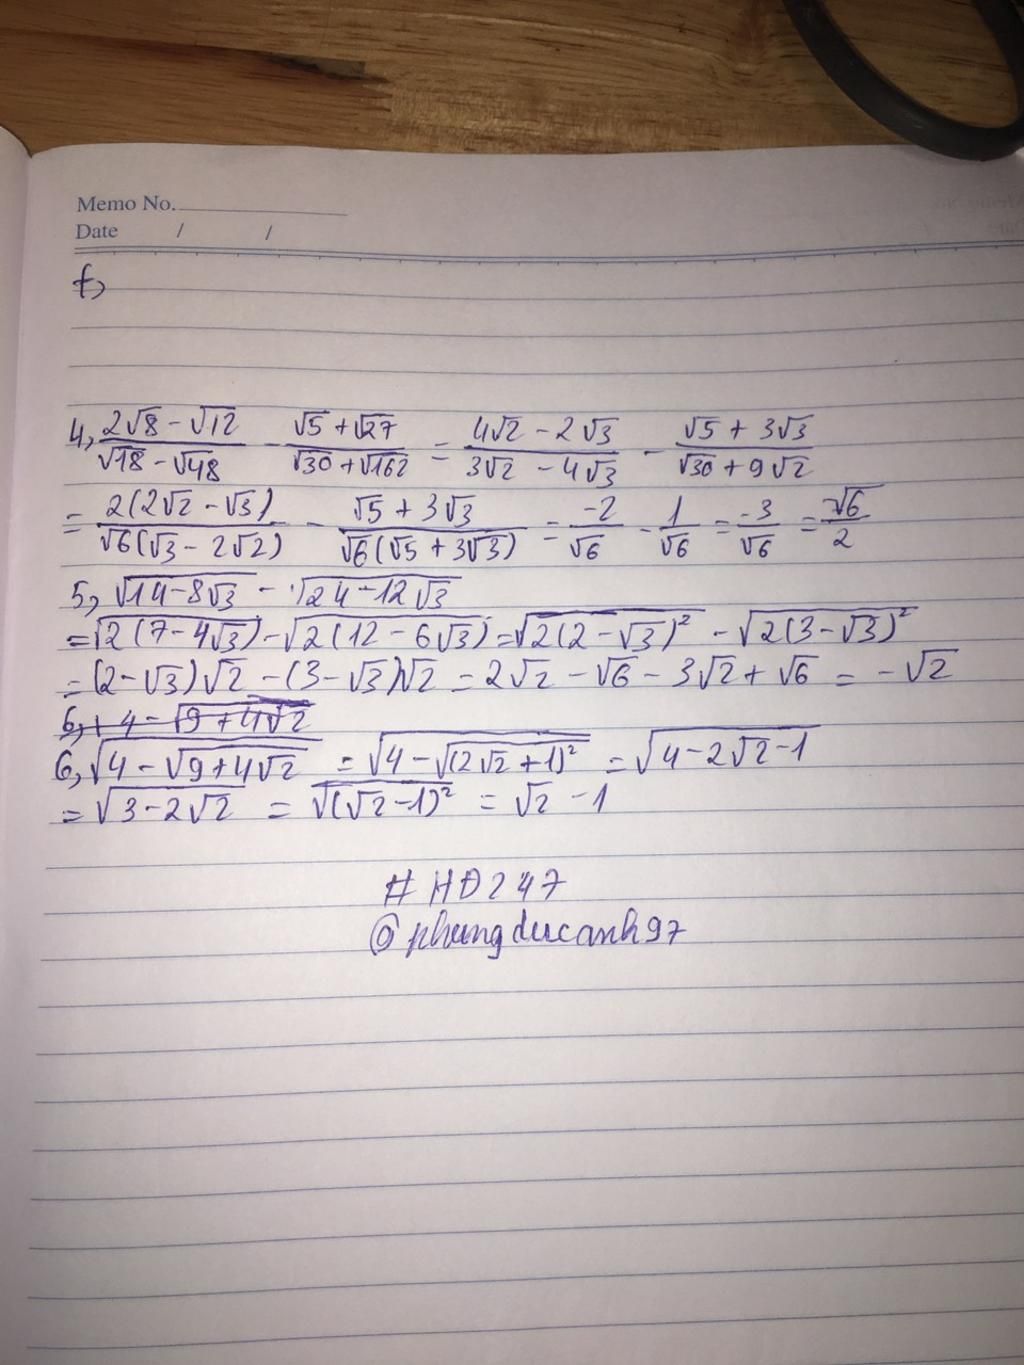 Memo No.
Date / /
f,
4, (2√8 - √12)/(√18 - √48) - (√5 + √27)/(√30 + √162) = (4√2 - 2√3)/(3√2 - 4√3) - (√5 + 3√3)/(√30 + 9√2)
= 2(2√2 - √3)/(√6(√3 - 2√2)) - (√5 + 3√3)/(√6(√5 + 3√3)) = -2/√6 - 1/√6 = -3/√6 = -√6/2
5, √(14 - 8√3) - √(24 - 12√3)
= √(2(7 - 4√3)) - √(2(12 - 6√3)) = √(2(2 - √3)²) - √(2(3 - √3)²)
= (2 - √3)√2 - (3 - √3)√2 = 2√2 - √6 - 3√2 + √6 = -√2
6, √(4 - √(9 + 4√2)) = √(4 - √((2√2 + 1)²)) = √(4 - 2√2 - 1)
= √(3 - 2√2) = √((√2 - 1)²) = √2 - 1
# HD247
@phungducanh97